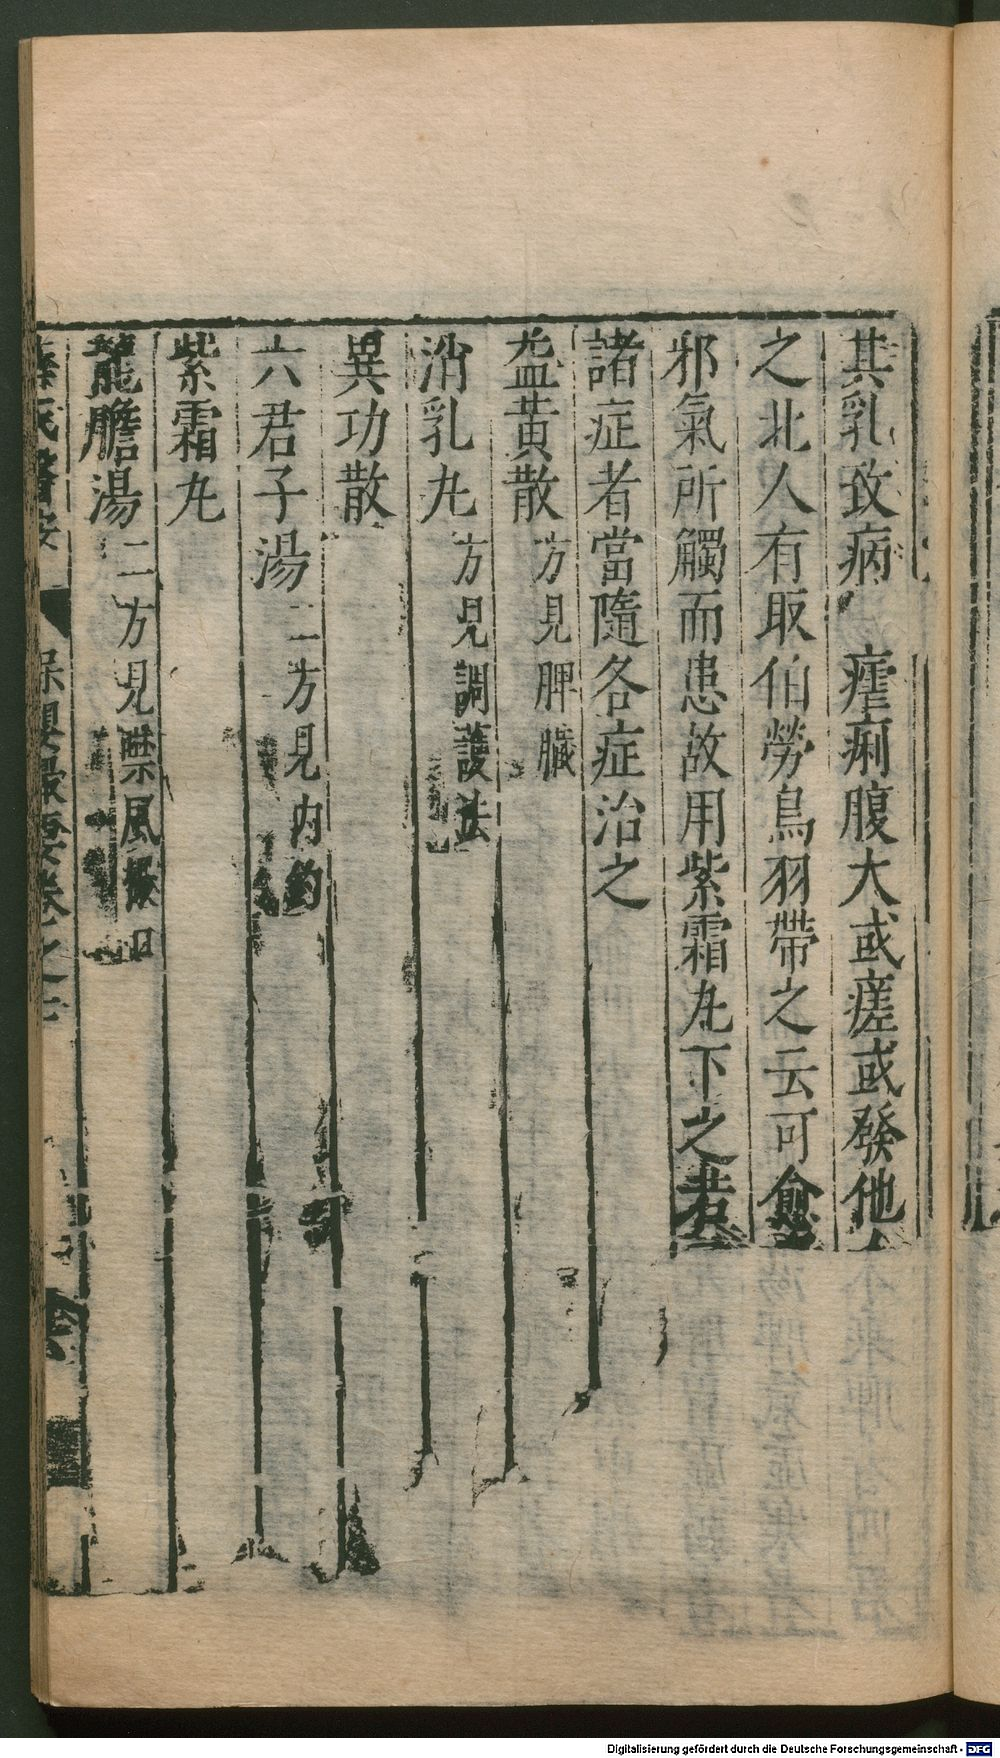 其乳致病 瘧痢腹大或瘥或發他人
之北人有取伯勞鳥羽帶之云可愈
邪氣所觸而患故用紫霜丸下之若
諸症者當隨各症治之
益黃散 方見脾臟
消乳丸 方見調護法
異功散
六君子湯 二方見內釣
紫霜丸
龍膽湯 二方見噤風撮口
薛氏醫按 保嬰撮要卷之七
Digitalisierung gefördert durch die Deutsche Forschungsgemeinschaft - DFG